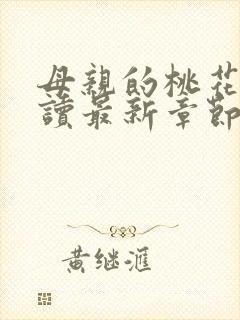 母親的桃花
讀最新章節
黄继滙